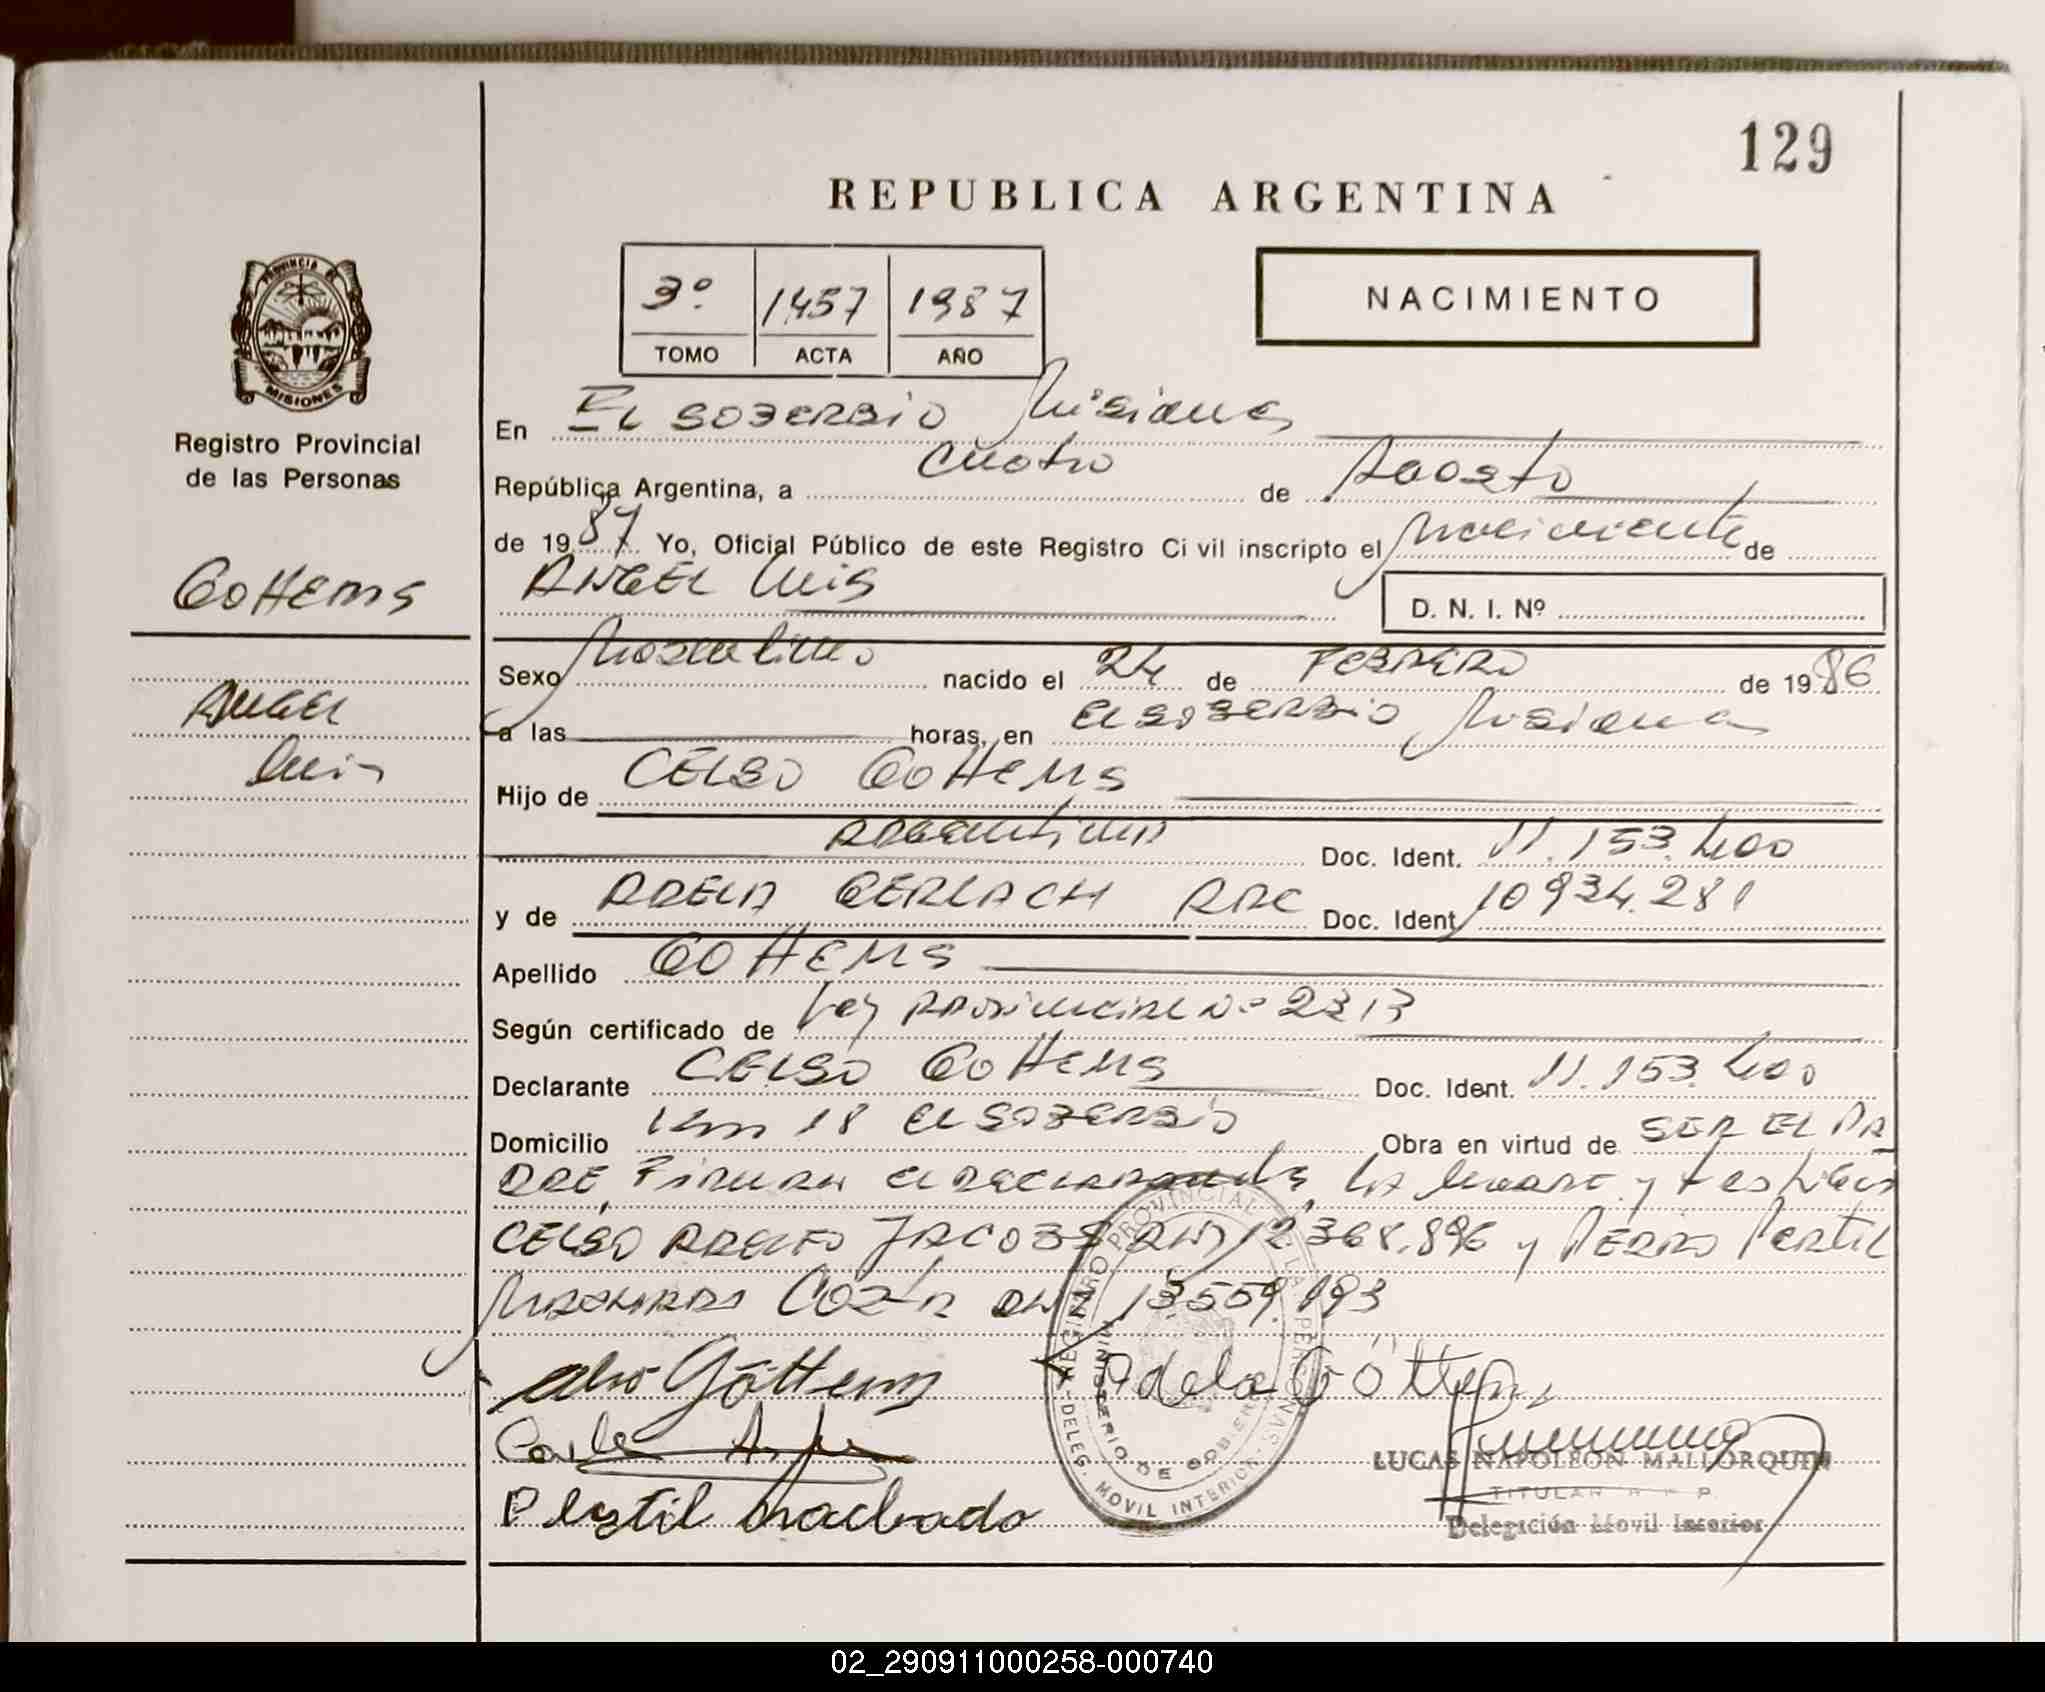 129
REPUBLICA ARGENTINA
3º 1457 1987
TOMO ACTA AÑO
NACIMIENTO
PROVINCIA DE
MISIONES
Registro Provincial
de las Personas
Gottems
Angel
Luis
En EL SOBERBIO Misiones
República Argentina, a Cuatro de Agosto
de 1987 Yo, Oficial Público de este Registro Civil inscripto el Nacimiento de
ANGEL Luis
D. N. I. Nº
Sexo Masculino nacido el 24 de FEBRERO de 1986
a las horas, en El SOBERBIO Misiones
Hijo de CELSO GOTTEMS
Argentino Doc. Ident. 11.153.400
y de ADELA GERLACH ARG Doc. Ident 10934.281
Apellido GOTTEMS
Según certificado de Ley Provincial Nº 2313
Declarante CELSO GOTTEMS Doc. Ident. 11.153.400
Domicilio Km 18 El SOBERBIO Obra en virtud de SER EL PA
DRE, Firman el declarante, la madre y testigos
CELSO ADELFO JACOBS DNI 12368.896 y PEDRO Pertil
Machado DNI 13559.193
Göttems
Adela Göttems
Pertil Machado
REGISTRO PROVINCIAL DE LAS PERSONAS
MINISTERIO DE GOBIERNO
DELEG. MOVIL INTERIOR
LUCAS NAPOLEON MALLORQUIN
TITULAR R. P. P.
Delegación Movil Interior
02_290911000258-000740